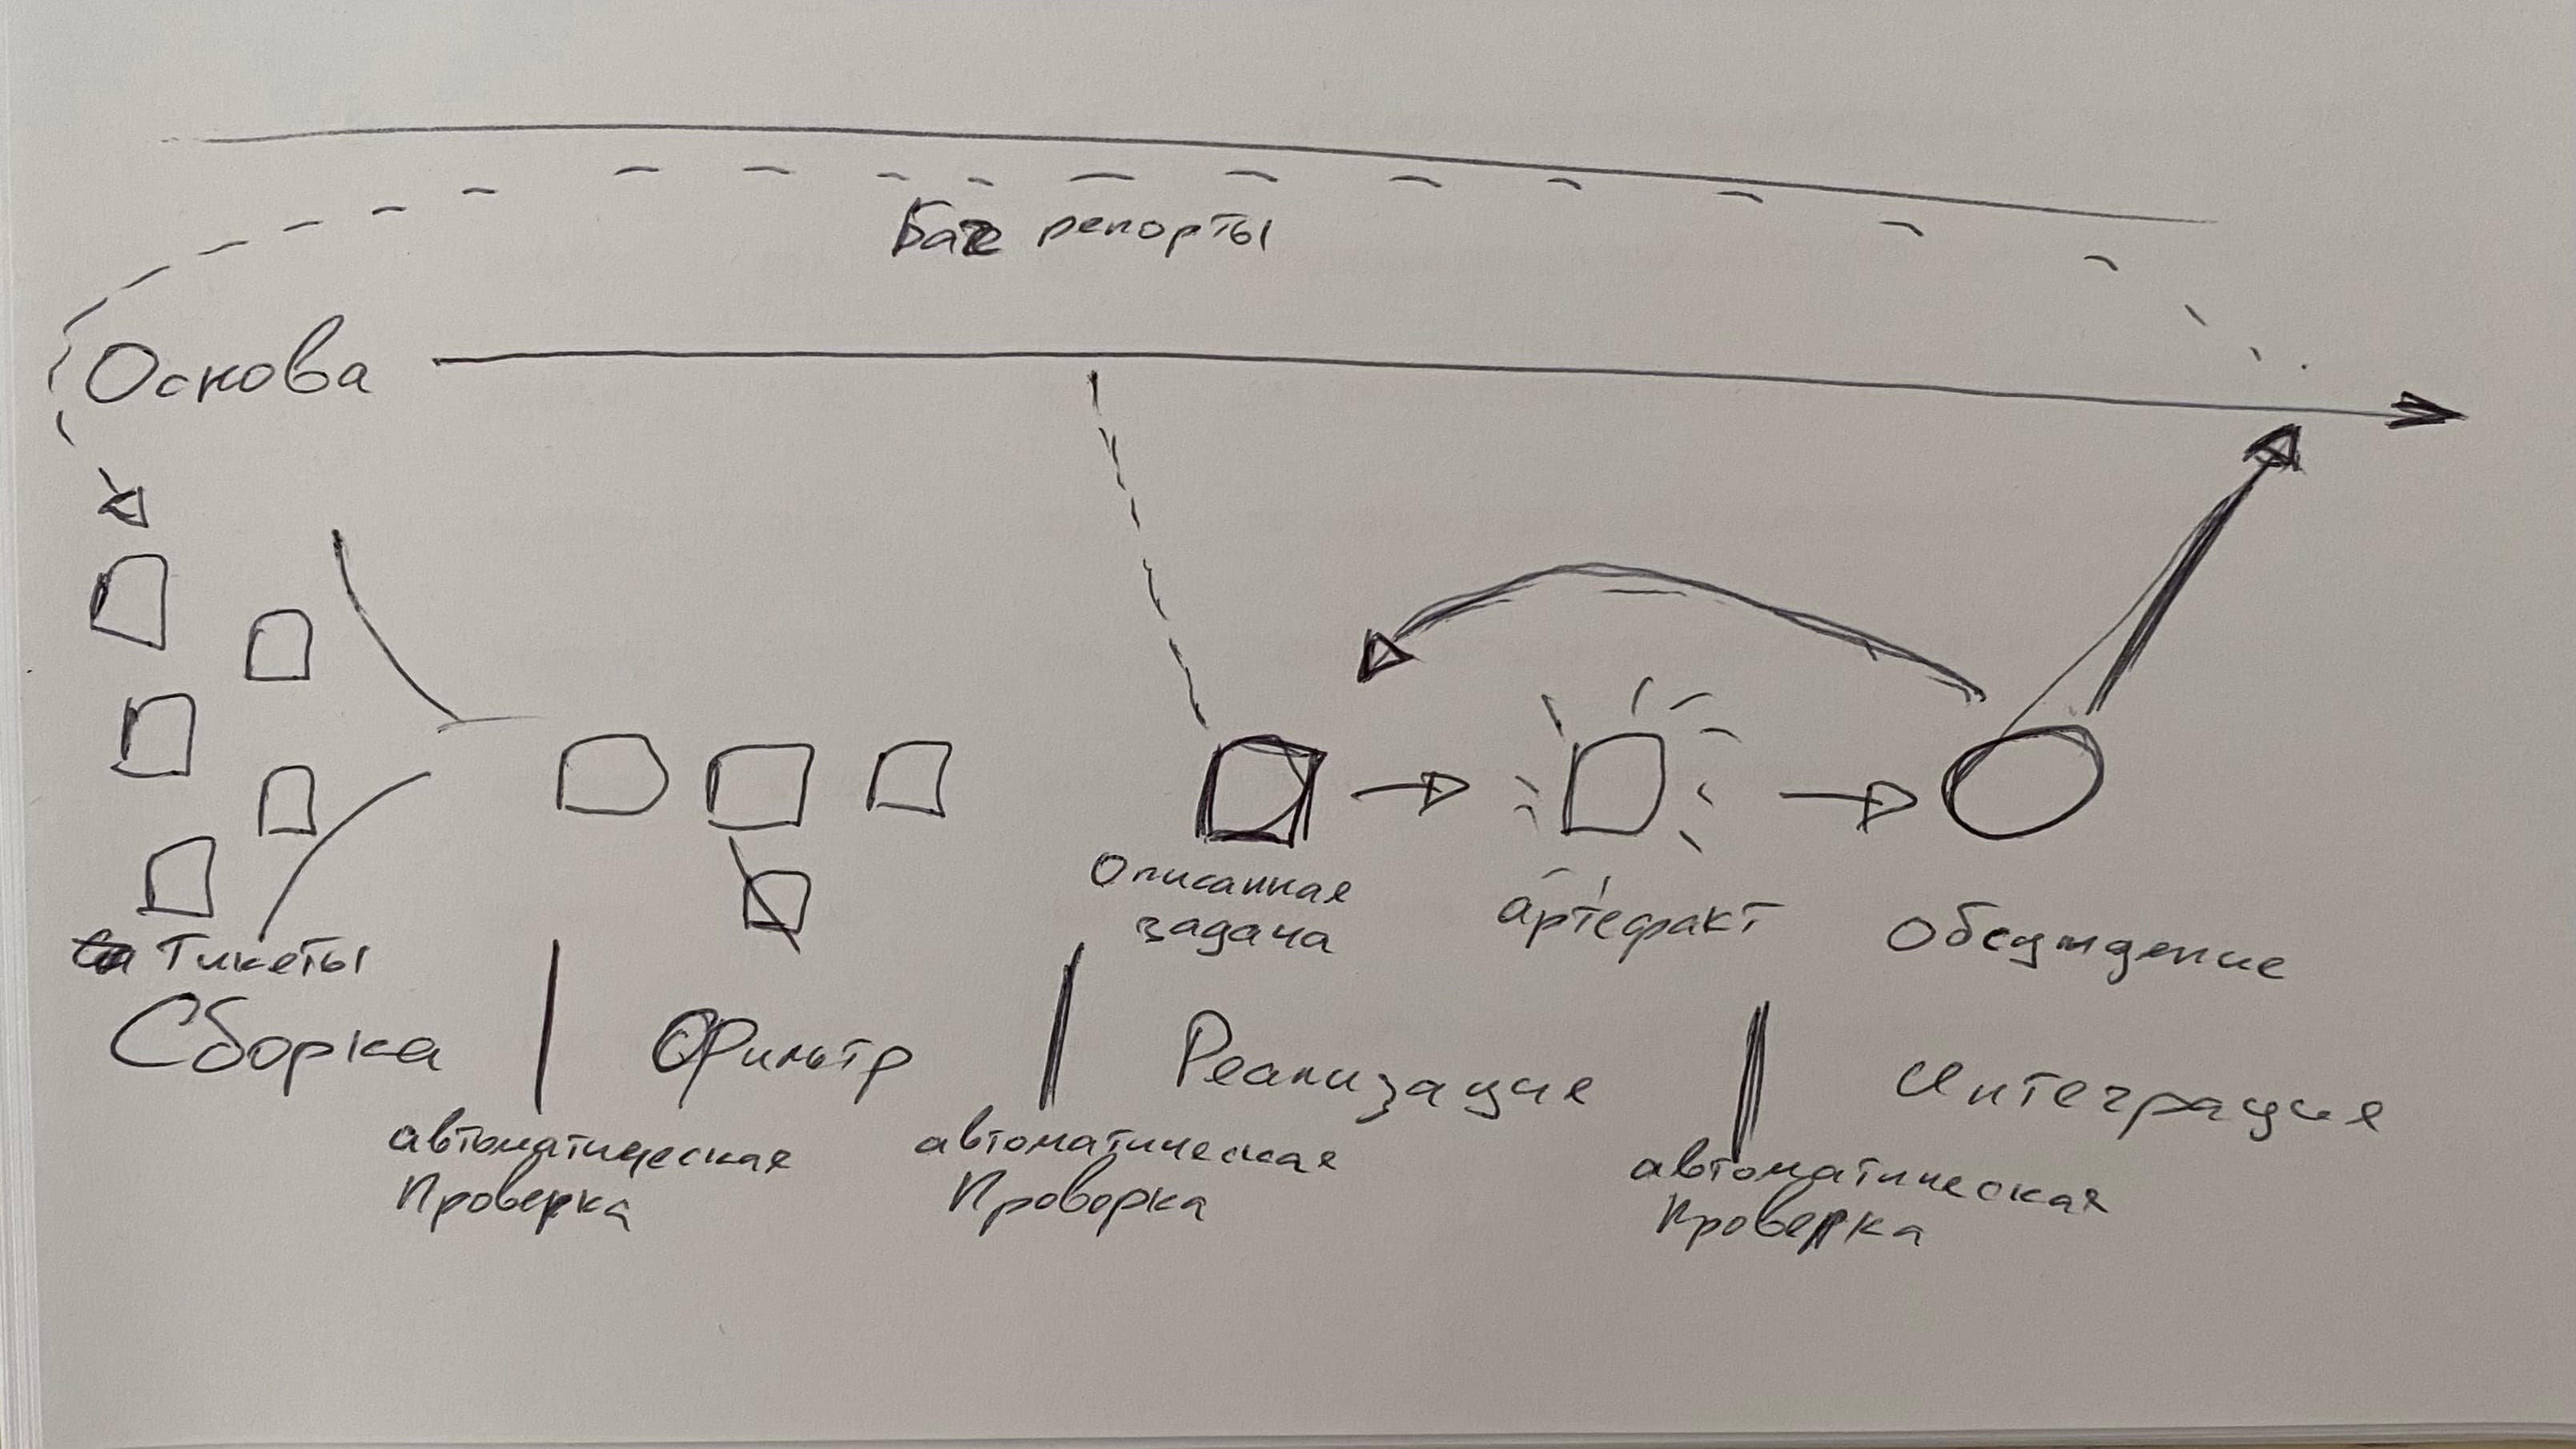 Баг репорты
Основа
Описанная
задача
артефакт
Обсуждение
Тикеты
Сборка
Фильтр
Реализация
Интеграция
автоматическая
Проверка
автоматическая
Проворка
автоматическая
Проверка